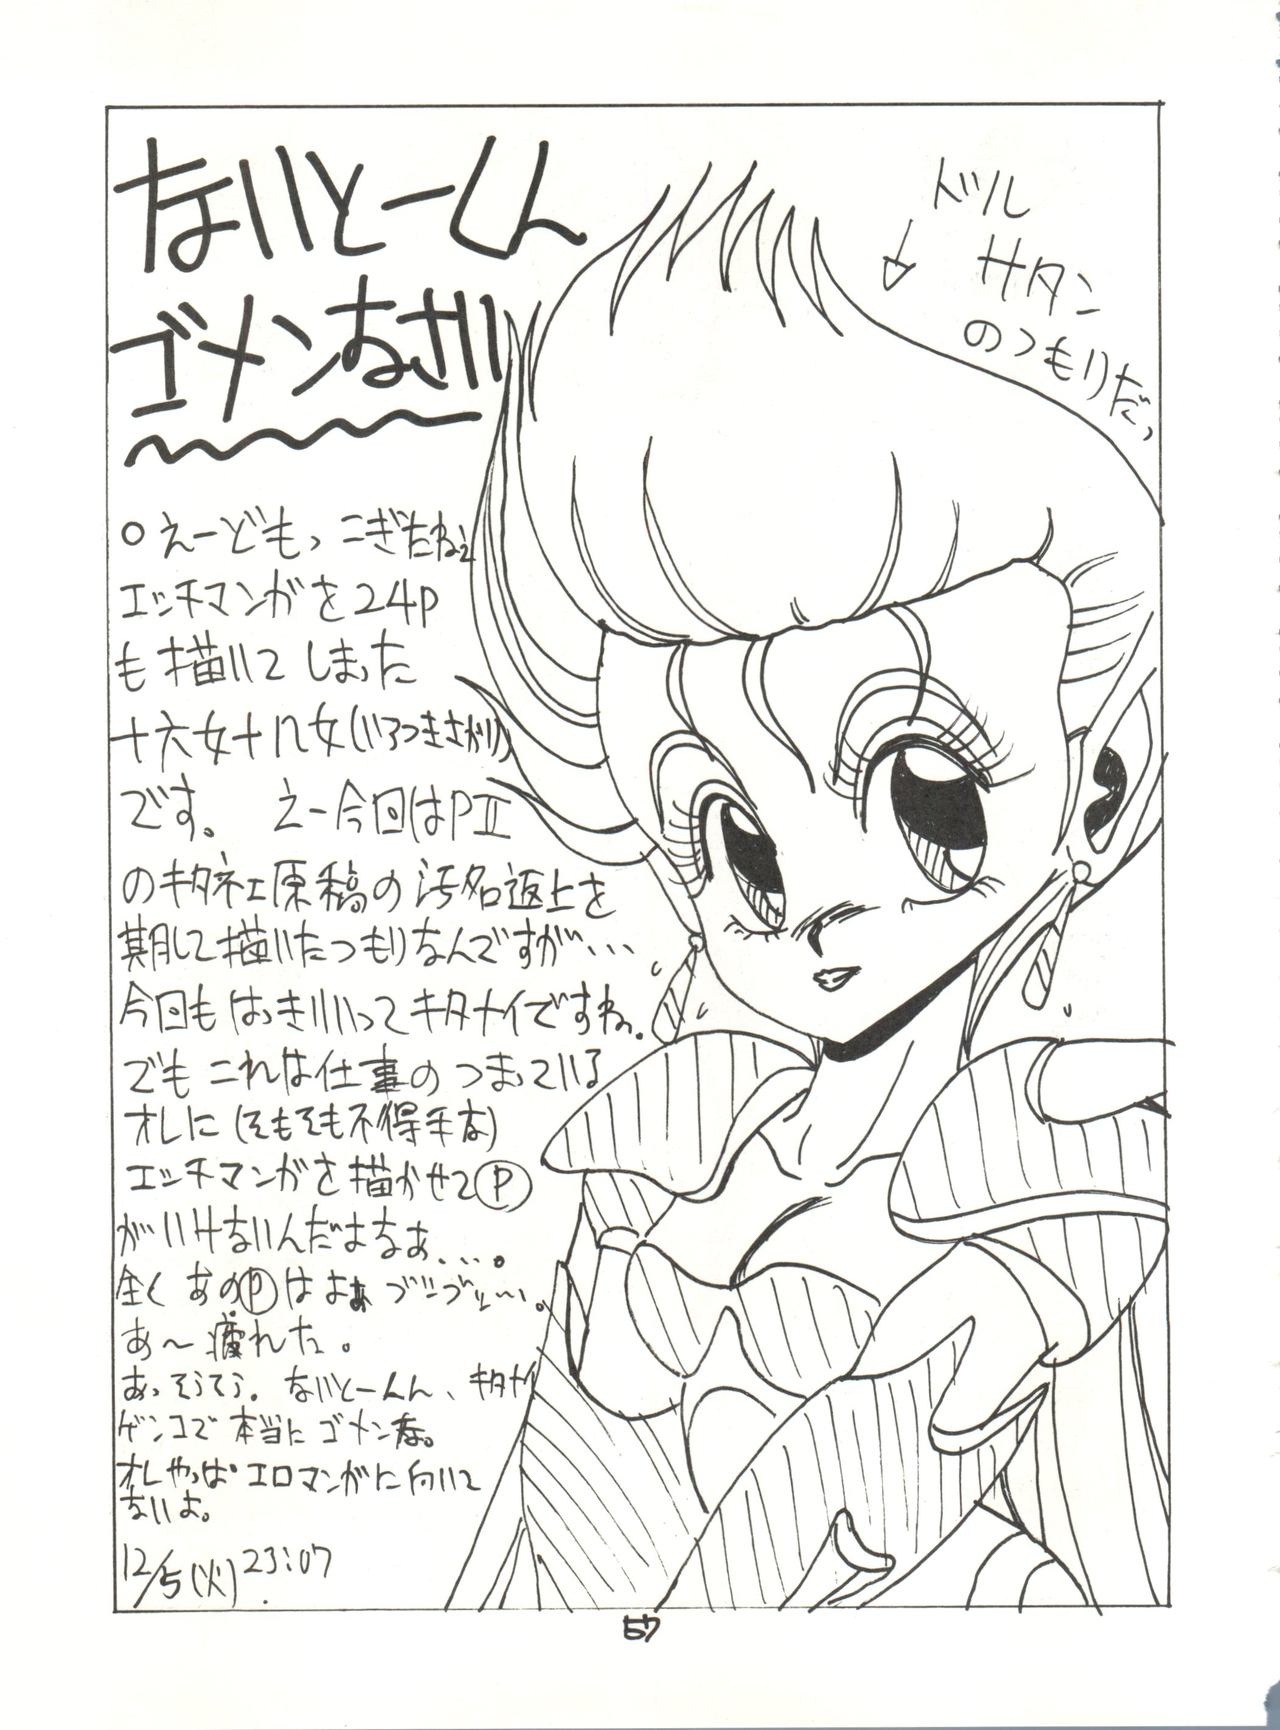 ないとーくん
ゴメンなさい
ドツル
サタン
のつもりだっ
○えーどもっ こぎたねェ
エッチマンガを24P
も描いて しまった
十六女十八女(いろつきさがり)
です。 えー今回はPⅡ
のキタネェ原稿の汚名返上を
期して描いたつもりなんですが…
今回も はっきりいってキタナイですね。
でも これは仕事の つまっている
オレに(そもそも不得手な)
エッチマンガを描かせてⓅ
がいけないんだよなぁ…。
全く あのⓅはよぉ ブツブツ…。
あ～疲れた。
あっそうそう。ないとーくん、キタナイ
ゲンコで本当に ゴメンな。
オレやっぱ エロマンガに向いて
ないよ。
12/5(火) 23:07
57